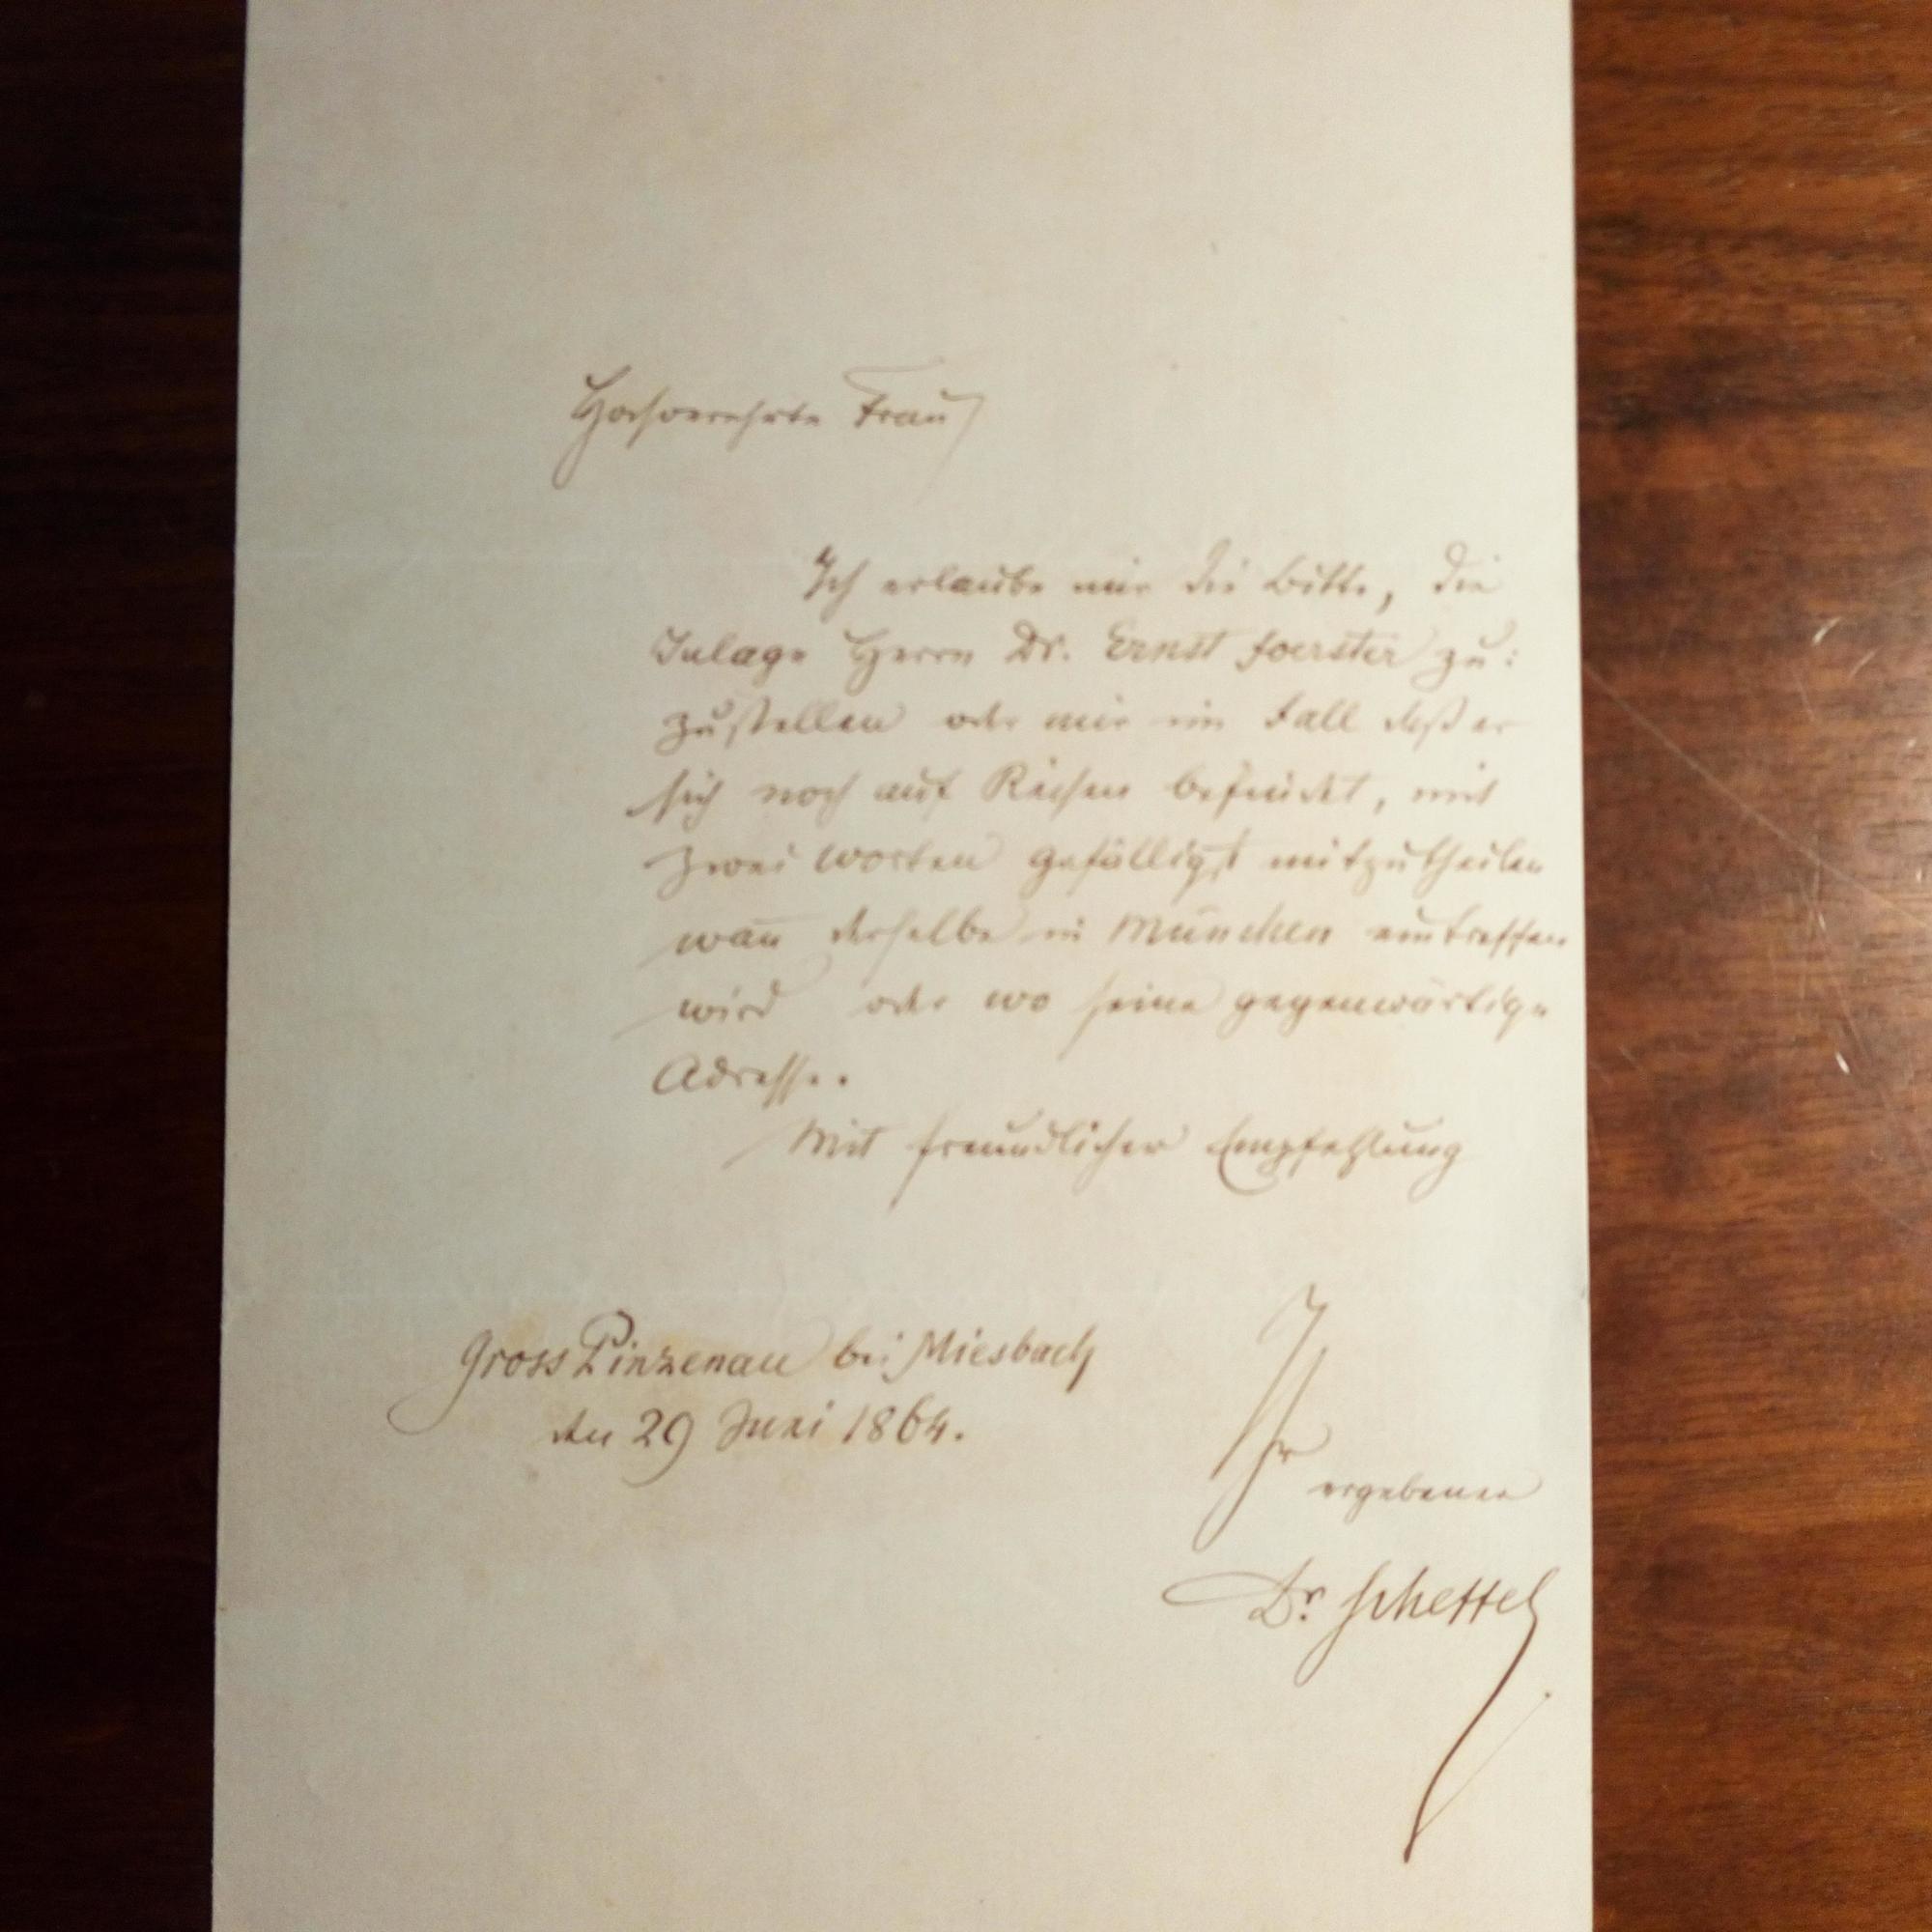 Hochverehrte Frau
Ich erlaube mir die Bitte, die
Inlage Herrn Dr. Ernst Foerster zu:
zustellen oder mir im Fall daß er
sich noch auf Reisen befindet, mit
zwei Worten gefälligst mitzutheilen
wañ derselbe in München eintreffen
wird oder wo seine gegenwärtige
Adresse.
Mit freundlicher Empfehlung
Gross Pinzenau bei Miesbach
den 29 Juni 1864.
Ihr
ergebener
Dr. Scheffel